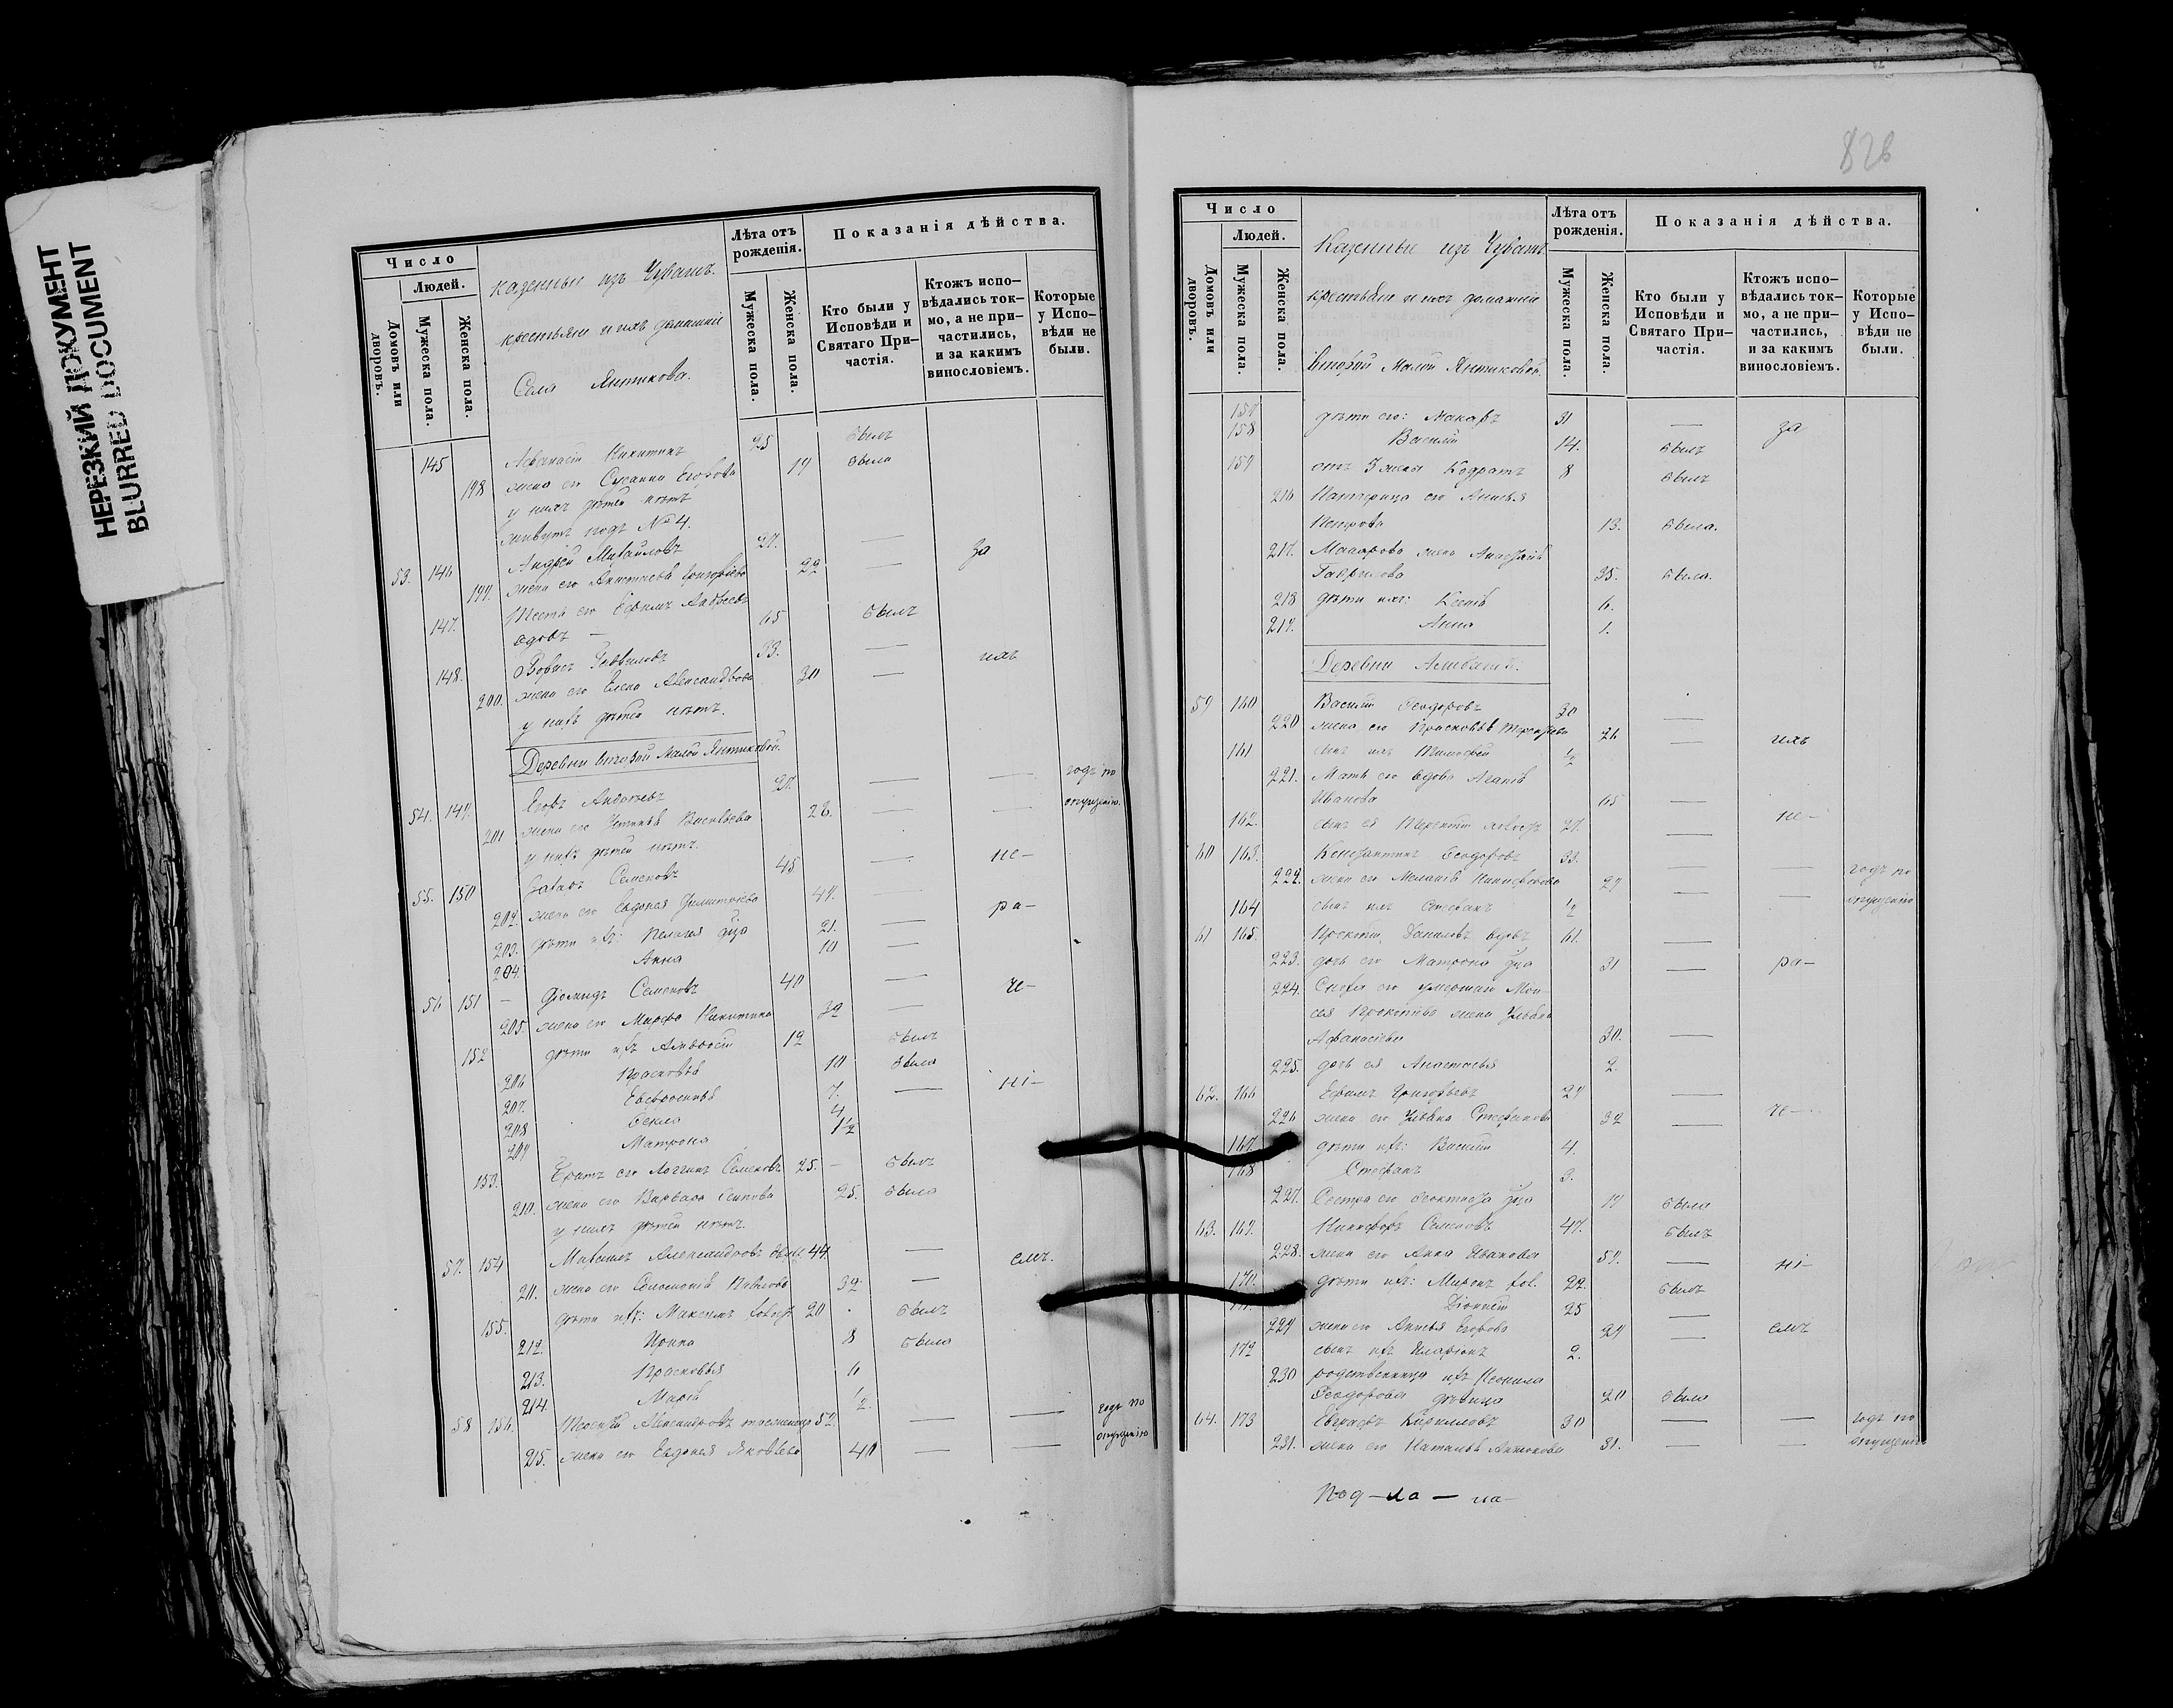 НЕРЕЗКИЙ ДОКУМЕНТ
BLURRED DOCUMENT
Число
Людей.
Домовъ или дворовъ.
Мужеска пола.
Женска пола.
Казенныи изъ Чувашъ
крестьяне и ихъ домашніи
Села Янтикова.
Лѣта отъ рожденія.
Мужеска пола.
Женска пола.
Показанія дѣйства.
Кто были у Исповѣди и Святаго Причастія.
Ктожъ исповѣдались токмо, а не причастились, и за какимъ винословіемъ.
Которые у Исповѣди не были.
145 Аѳанасій Никитинъ 25 былъ
198 жена его Сусанна Егорова 19 была
у нихъ дѣтей нѣтъ
живутъ подъ № 4.
53. 146 Андрей Михайловъ 27. — за
199. жена его Анастасія Григорьева 22 —
147. Тесть его Ефимъ Андреевъ
вдовъ — 65 былъ
148. Борисъ 33. — ихъ
200. жена его Елена Александрова 30 —
у нихъ дѣтей нѣтъ.
Деревни второй Малой Янтиковой.
54. 149. Егоръ 27. — — годъ по
201 жена его Устинья Васильева 28. — — опущенію.
у нихъ дѣтей нѣтъ.
55. 150 Семеновъ 45 — не—
202. жена его Евдокія Димитріева 47. —
203. дѣти ихъ: Пелагея дѣва 21. — ра—
204. Анна 10 —
56 151 — Діомидъ Семеновъ 40 — че—
205. жена его Марѳа Никитина 32 —
152 дѣти ихъ Амвросій 12 былъ
206 Прасковья 10 была
207. Евфросинья 7. — ні—
208 Ѳекла 4
209 Матрона 1½
153. Братъ его Логгинъ Семеновъ 25. — былъ
210. жена его Варвара Осипова 25. была
у нихъ дѣтей нѣтъ.
57. 154 Александровъ 44 — емъ.
211. жена его Соломонія Павлова 32 —
155. дѣти ихъ: Максимъ холостъ 20 былъ
212. Ирина 8 была
213. Прасковья 6
214 Марія ½
58 156. Терентій Александровъ 52. — — годъ по
215. жена его Евдокія Яковлева 40 — — опущенію
828
Число
Людей.
Домовъ или дворовъ.
Мужеска пола.
Женска пола.
Казенныи изъ Чувашъ
крестьяне и ихъ домашніи
второй Малой Янтиковой.
Лѣта отъ рожденія.
Мужеска пола.
Женска пола.
Показанія дѣйства.
Кто были у Исповѣди и Святаго Причастія.
Ктожъ исповѣдались токмо, а не причастились, и за какимъ винословіемъ.
Которые у Исповѣди не были.
157 дѣти его: Макаръ 31 — за
158 Василій 14. былъ
159 отъ 3 жены Кодратъ 8 былъ
216 Падчерица его Анисья
Петрова 13. была.
217. Макарова жена Анастасія
Гаврилова 35. была.
218 дѣти ихъ: Ксенія 6.
219. Анна 1.
Деревни
59 160 Василій Ѳеодоровъ 30 —
220 жена его Прасковья Терентьева 26 — ихъ
161 сынъ ихъ Тимоѳей ½
221. Мать его вдова Агаѳія
Иванова 65 —
162. сынъ ея Терентій холостъ 27. — не—
60 163. Константинъ Ѳеодоровъ 33. — — годъ по
222. жена его Меланія Никифорова 29 — — опущенію
164 сынъ ихъ Стефанъ ½
61 165. Прокопій Даниловъ вдовъ 61. —
223. дочь его Матрона дѣва 31 — ра—
224. Сноха его умершаго Мои-
сея Прокопьева жена Ульяна
Афанасьева 30. —
225. дочь ея Анастасія 2.
62. 166 Ефимъ Григорьевъ 29 —
226 жена его Ульяна Стефанова 32 — че—
167. дѣти ихъ: Василій 4.
168 Стефанъ 3.
227. Сестра его Ѳеоктиста дѣва 19 была
63. 169. Никифоръ Семеновъ 47. былъ
228. жена его Анна Иванова 57. — ні—
170. дѣти ихъ: Миронъ хол. 22. былъ
171. Діонисій 25 —
229 жена его Анисья Егорова 29 — емъ
172 сынъ ихъ Иларіонъ 2.
230 родственница ихъ Неонила
Ѳеодорова дѣвица 20 была
64. 173 Евграфъ Кирилловъ 30 — — годъ по
231. жена его Наталья Антонова 31. — — опущенію